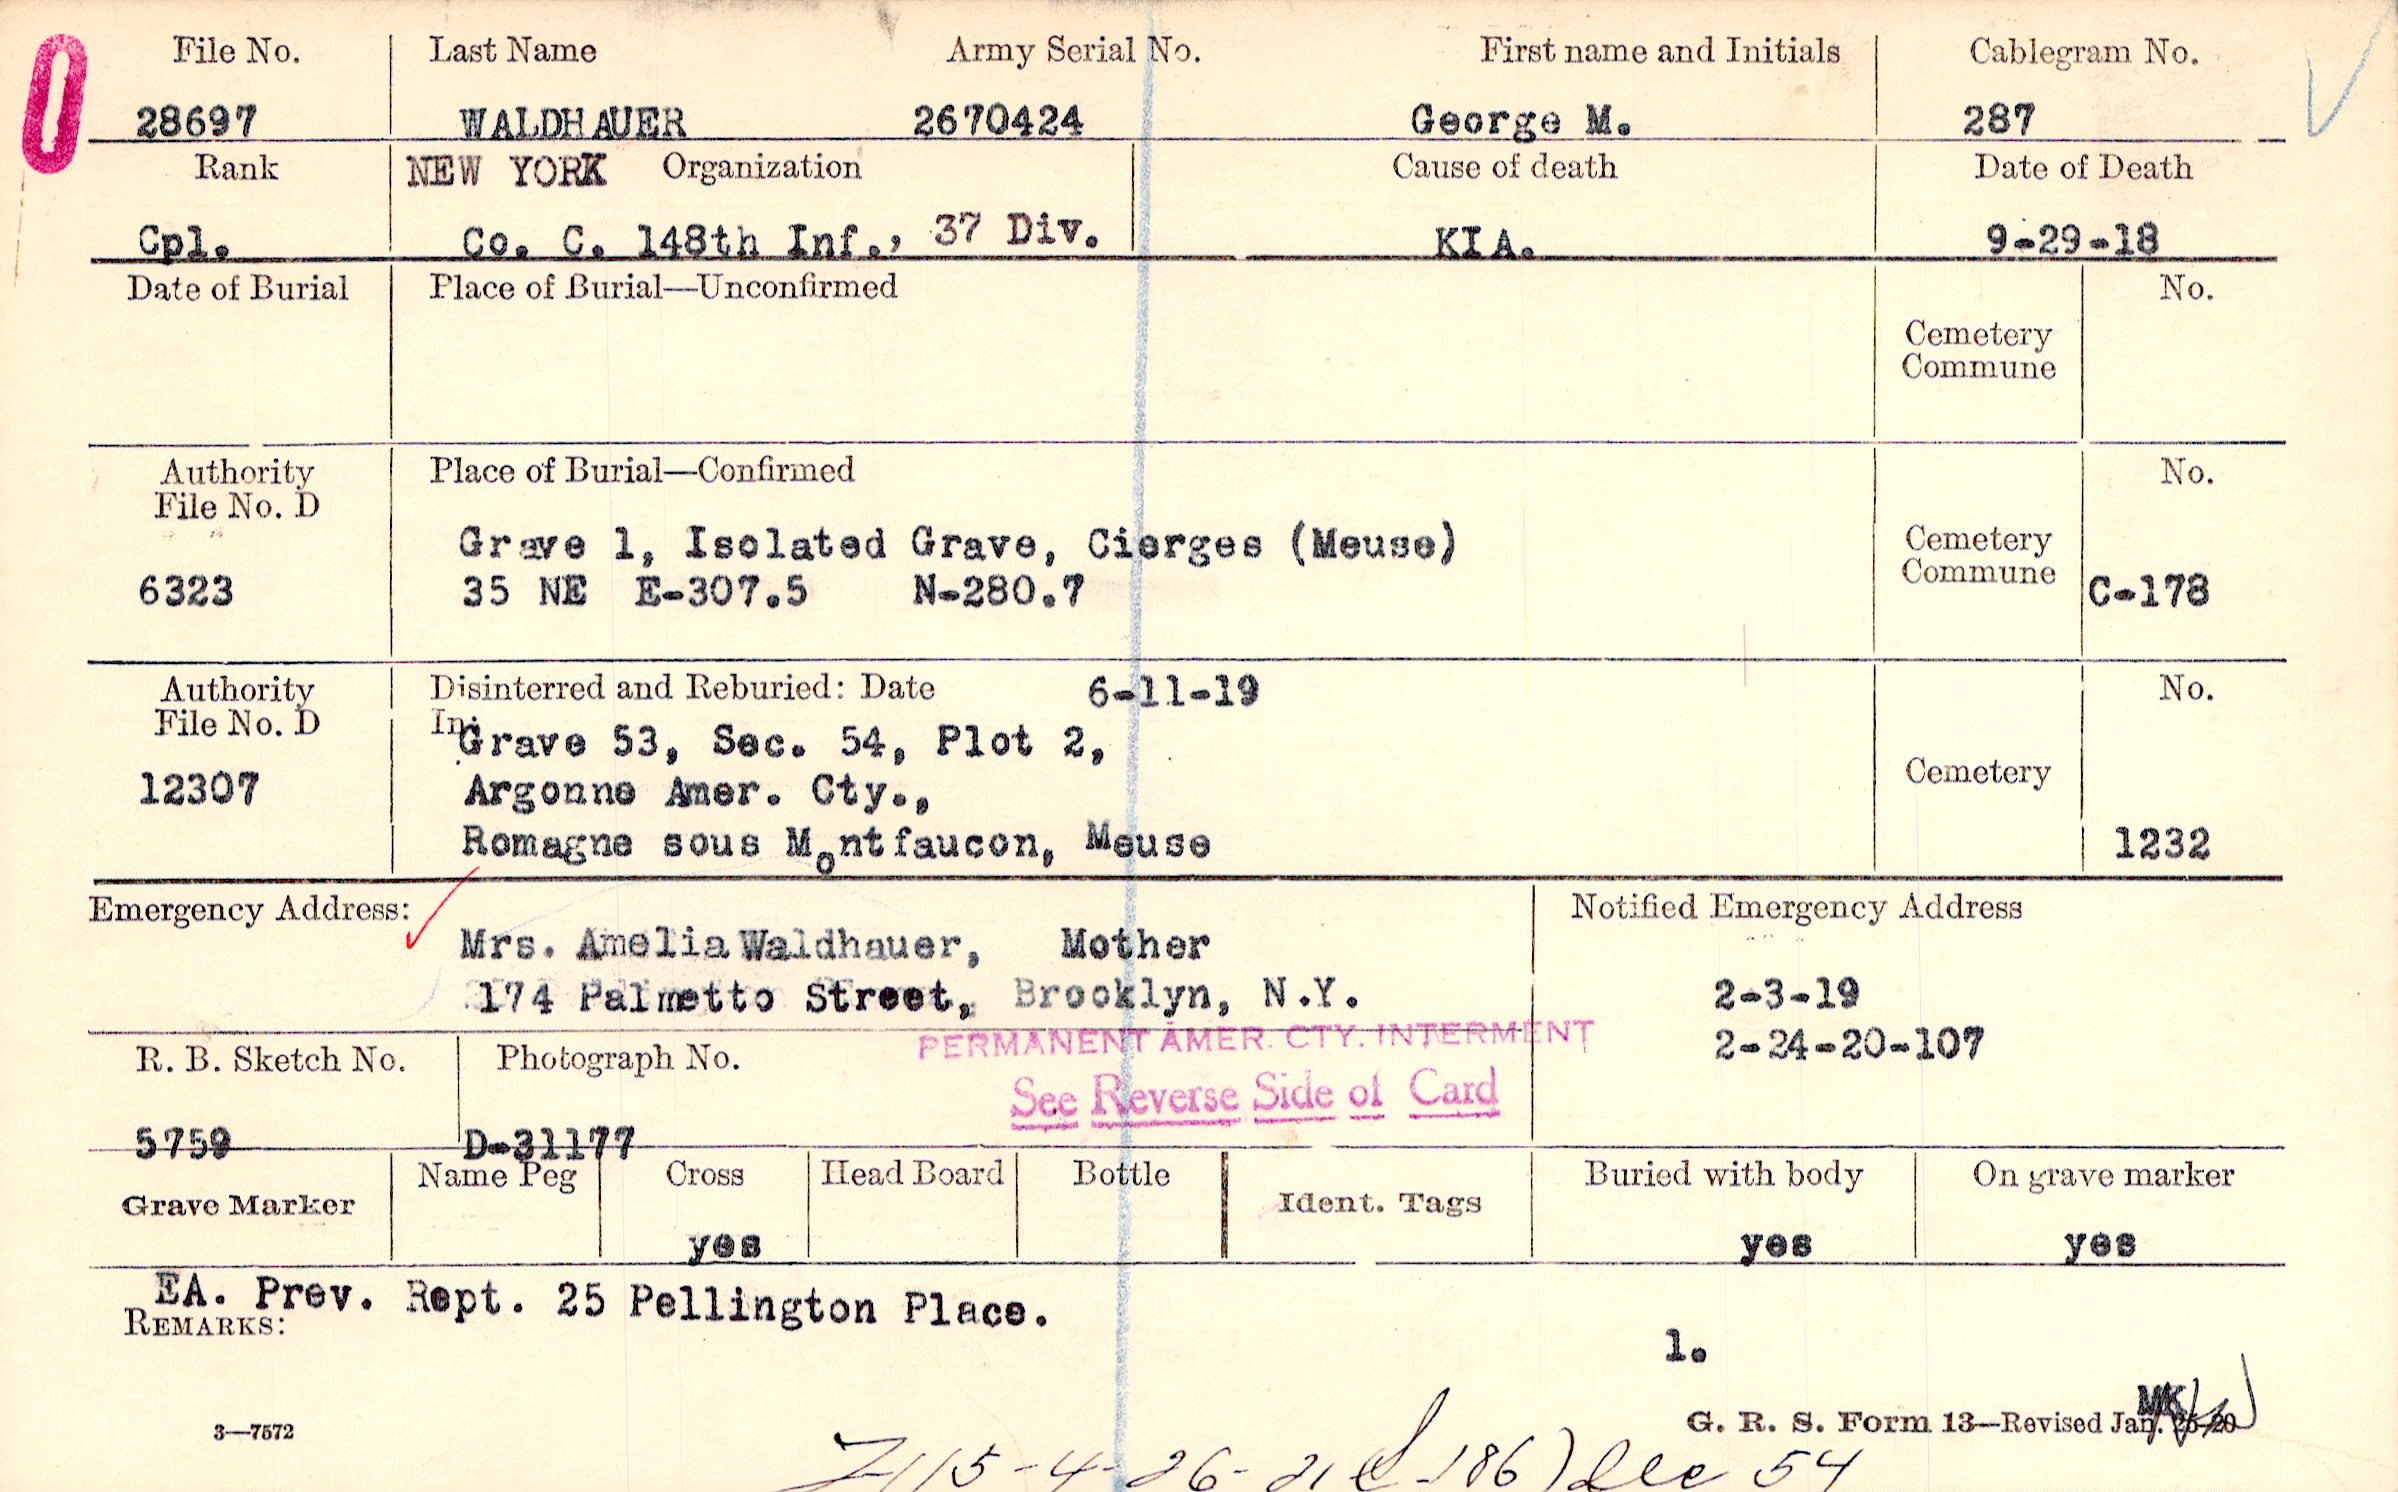 File No. Last Name Army Serial No. First name and Initials Cablegram No.
28697 WALDHAUER 2670424 George M. 287
Rank NEW YORK Organization Cause of death Date of Death
Cpl. Co. C. 148th Inf., 37 Div. KIA. 9-29-18
Date of Burial Place of Burial—Unconfirmed No.
Cemetery
Commune
Authority Place of Burial—Confirmed No.
File No. D
Grave 1, Isolated Grave, Cierges (Meuse) Cemetery
6323 35 NE E-307.5 N-280.7 Commune C-178
Authority Disinterred and Reburied: Date 6-11-19 No.
File No. D In: Grave 53, Sec. 54, Plot 2,
12307 Argonne Amer. Cty., Cemetery
Romagne sous Montfaucon, Meuse 1232
Emergency Address: Notified Emergency Address
Mrs. Amelia Waldhauer, Mother
174 Palmetto Street, Brooklyn, N.Y. 2-3-19
PERMANENT AMER. CTY. INTERMENT 2-24-20-107
R. B. Sketch No. Photograph No.
See Reverse Side of Card
5759 D-31177
Grave Marker Name Peg Cross Head Board Bottle Ident. Tags Buried with body On grave marker
yes yes yes
EA. Prev. Rept. 25 Pellington Place.
REMARKS:
1.
MK
3—7572 G. R. S. Form 13—Revised Jan. 26-20
15-4-26-21 186) Dec 54